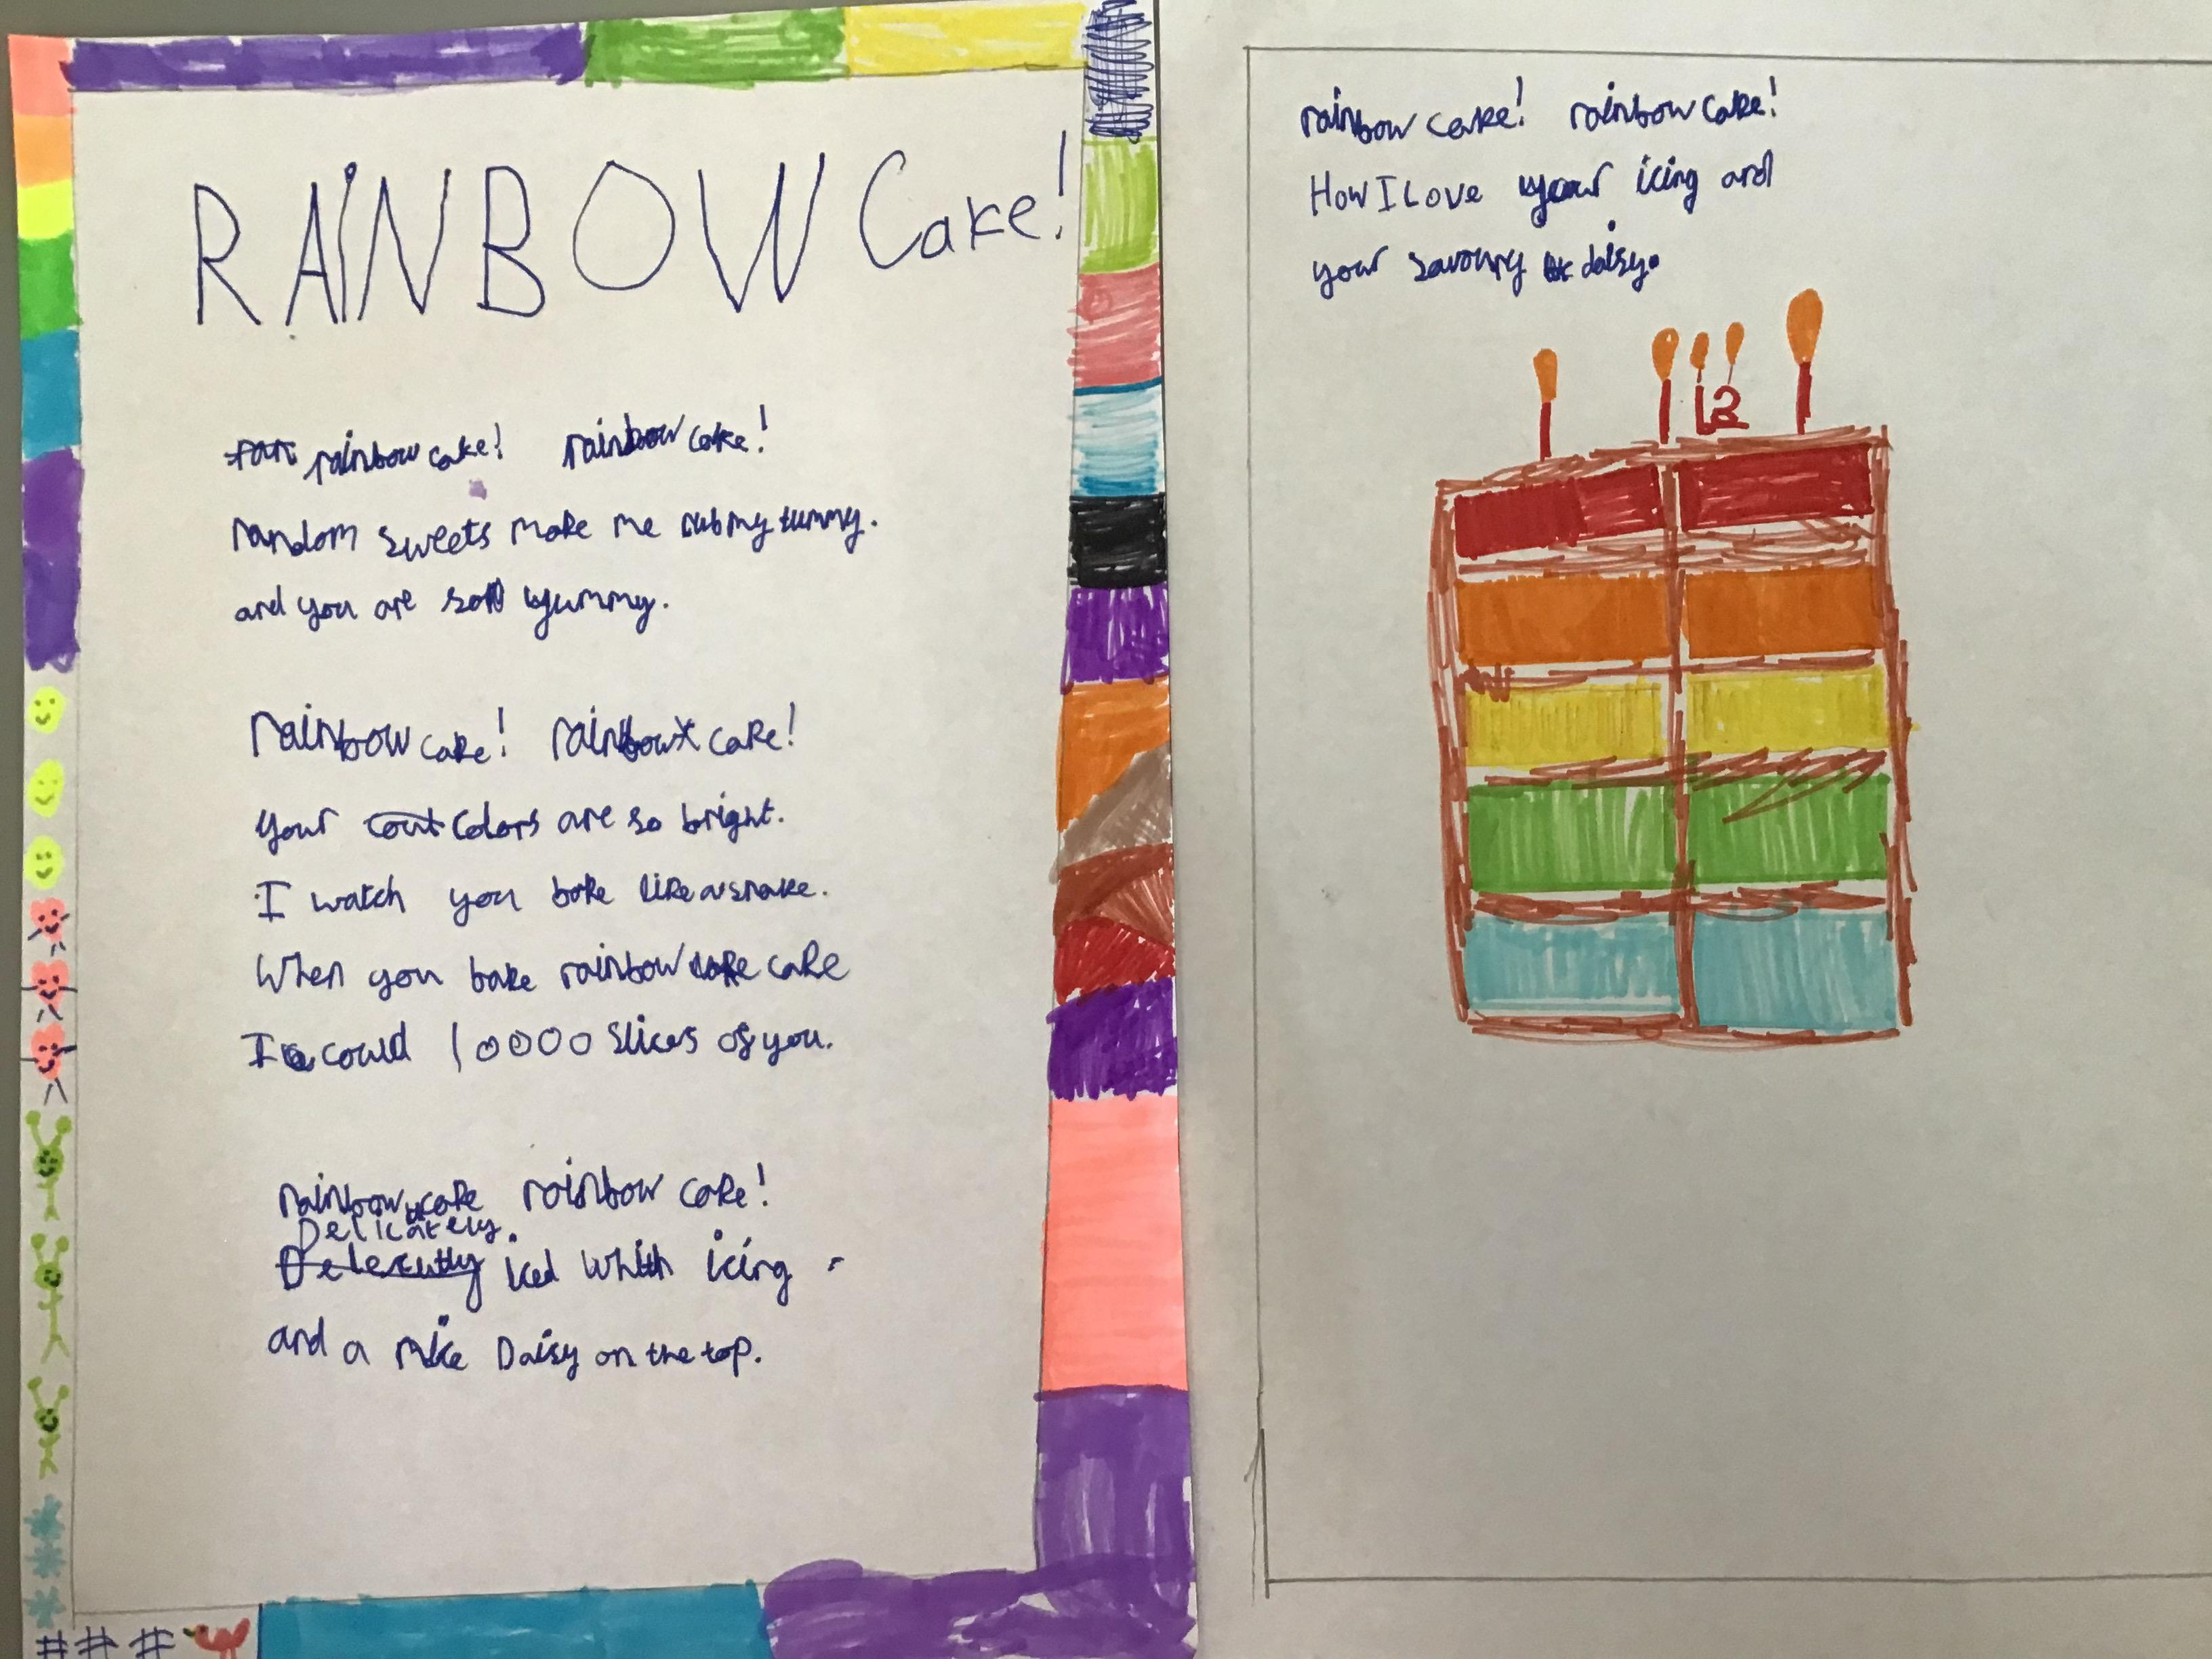 RAINBOW Cake!
rainbow cake! rainbow cake!
random sweets make me rub my tummy.
and you are soo yummy.
rainbow cake! rainbow cake!
Your colors are so bright.
I watch you bake like a snake.
When you bake rainbow cake
I could 10000 slices of you.
rainbow cake rainbow cake!
Delicately
iced whith icing
and a Daisy on the top.
rainbow cake! rainbow cake!
How I Love your icing and
your savoury daisy.
12
# # #